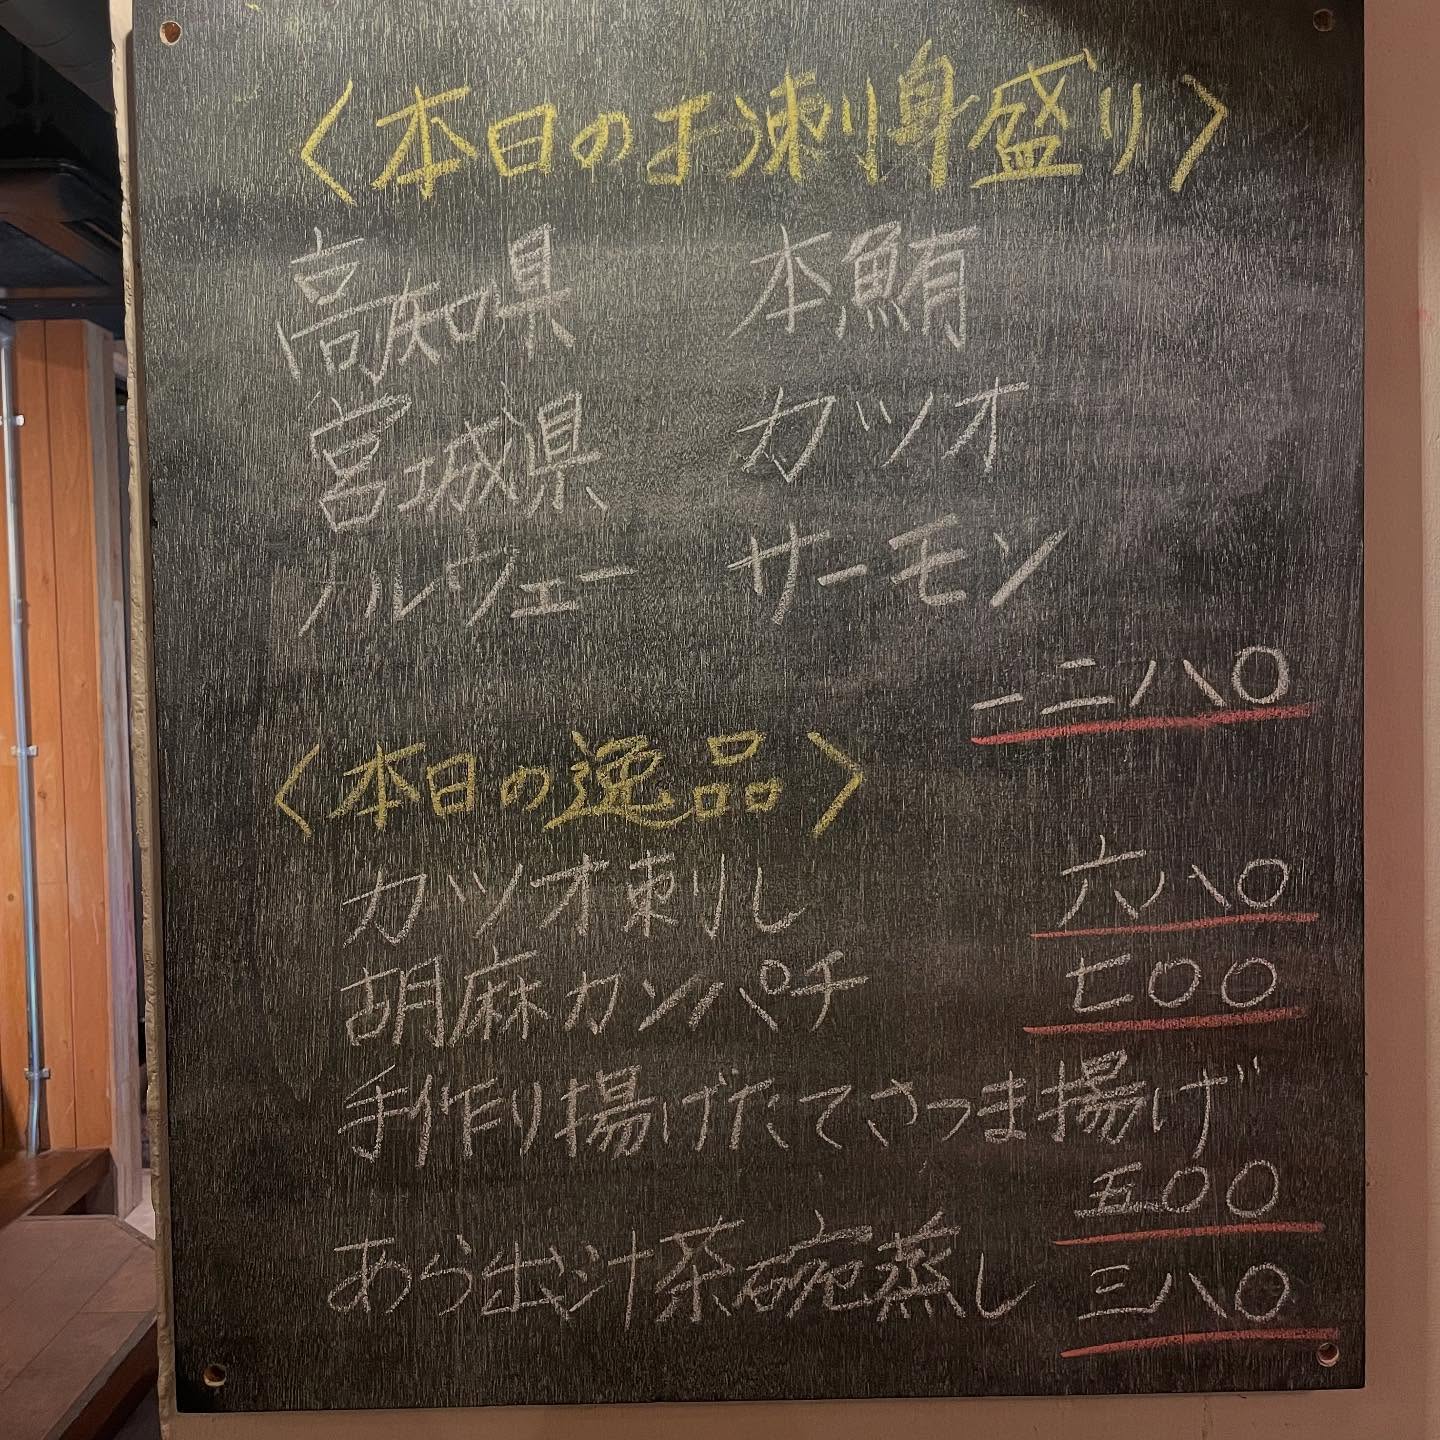 〈本日のお刺身盛り〉
高知県 本鮪
宮城県 カツオ
ノルウェー サーモン
一二八〇
〈本日の逸品〉
カツオ刺し 六八〇
胡麻カンパチ 七〇〇
手作り揚げたてさつま揚げ
五〇〇
あら出汁茶碗蒸し 三八〇